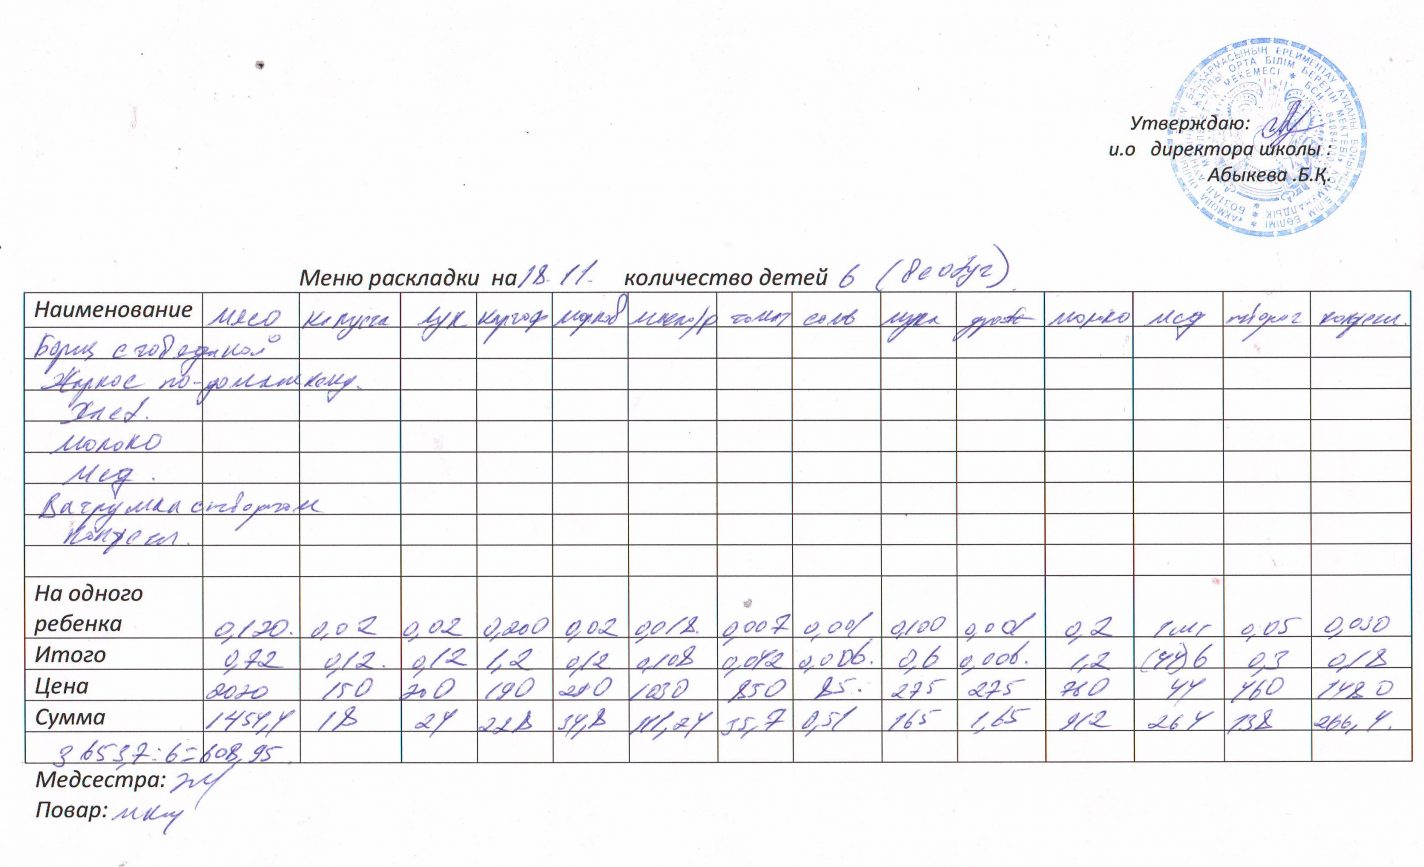 Утверждаю:
и.о директора школы :
Абыкева .Б.Қ.
Меню раскладки на 18.11. количество детей 6 (
Наименование мясо капуста лук картоф морков масло/р томат соль мука дрож молоко мед творог
Борщ с говядиной
Жаркое по-домашнему.
Хлеб.
Молоко
Мед.
Ватрушка с творогом
На одного
ребенка 0,120. 0,02 0,02 0,200 0,02 0,018. 0,007 0,001 0,100 0,001 0,2 1 шт 0,05 0,030
Итого 0,72 0,12. 0,12 1,2 0,12 0,108 0,042 0,006. 0,6 0,006. 1,2 (44) 6 0,3 0,18
Цена 2020 150 200 190 290 1030 850 85. 275 275 760 44 460 1480
Сумма 1454,4 18 24 228 34,8 111,24 35,7 0,51 165 1,65 912 264 138 266,4.
3653,7:6=608,95
Медсестра:
Повар: